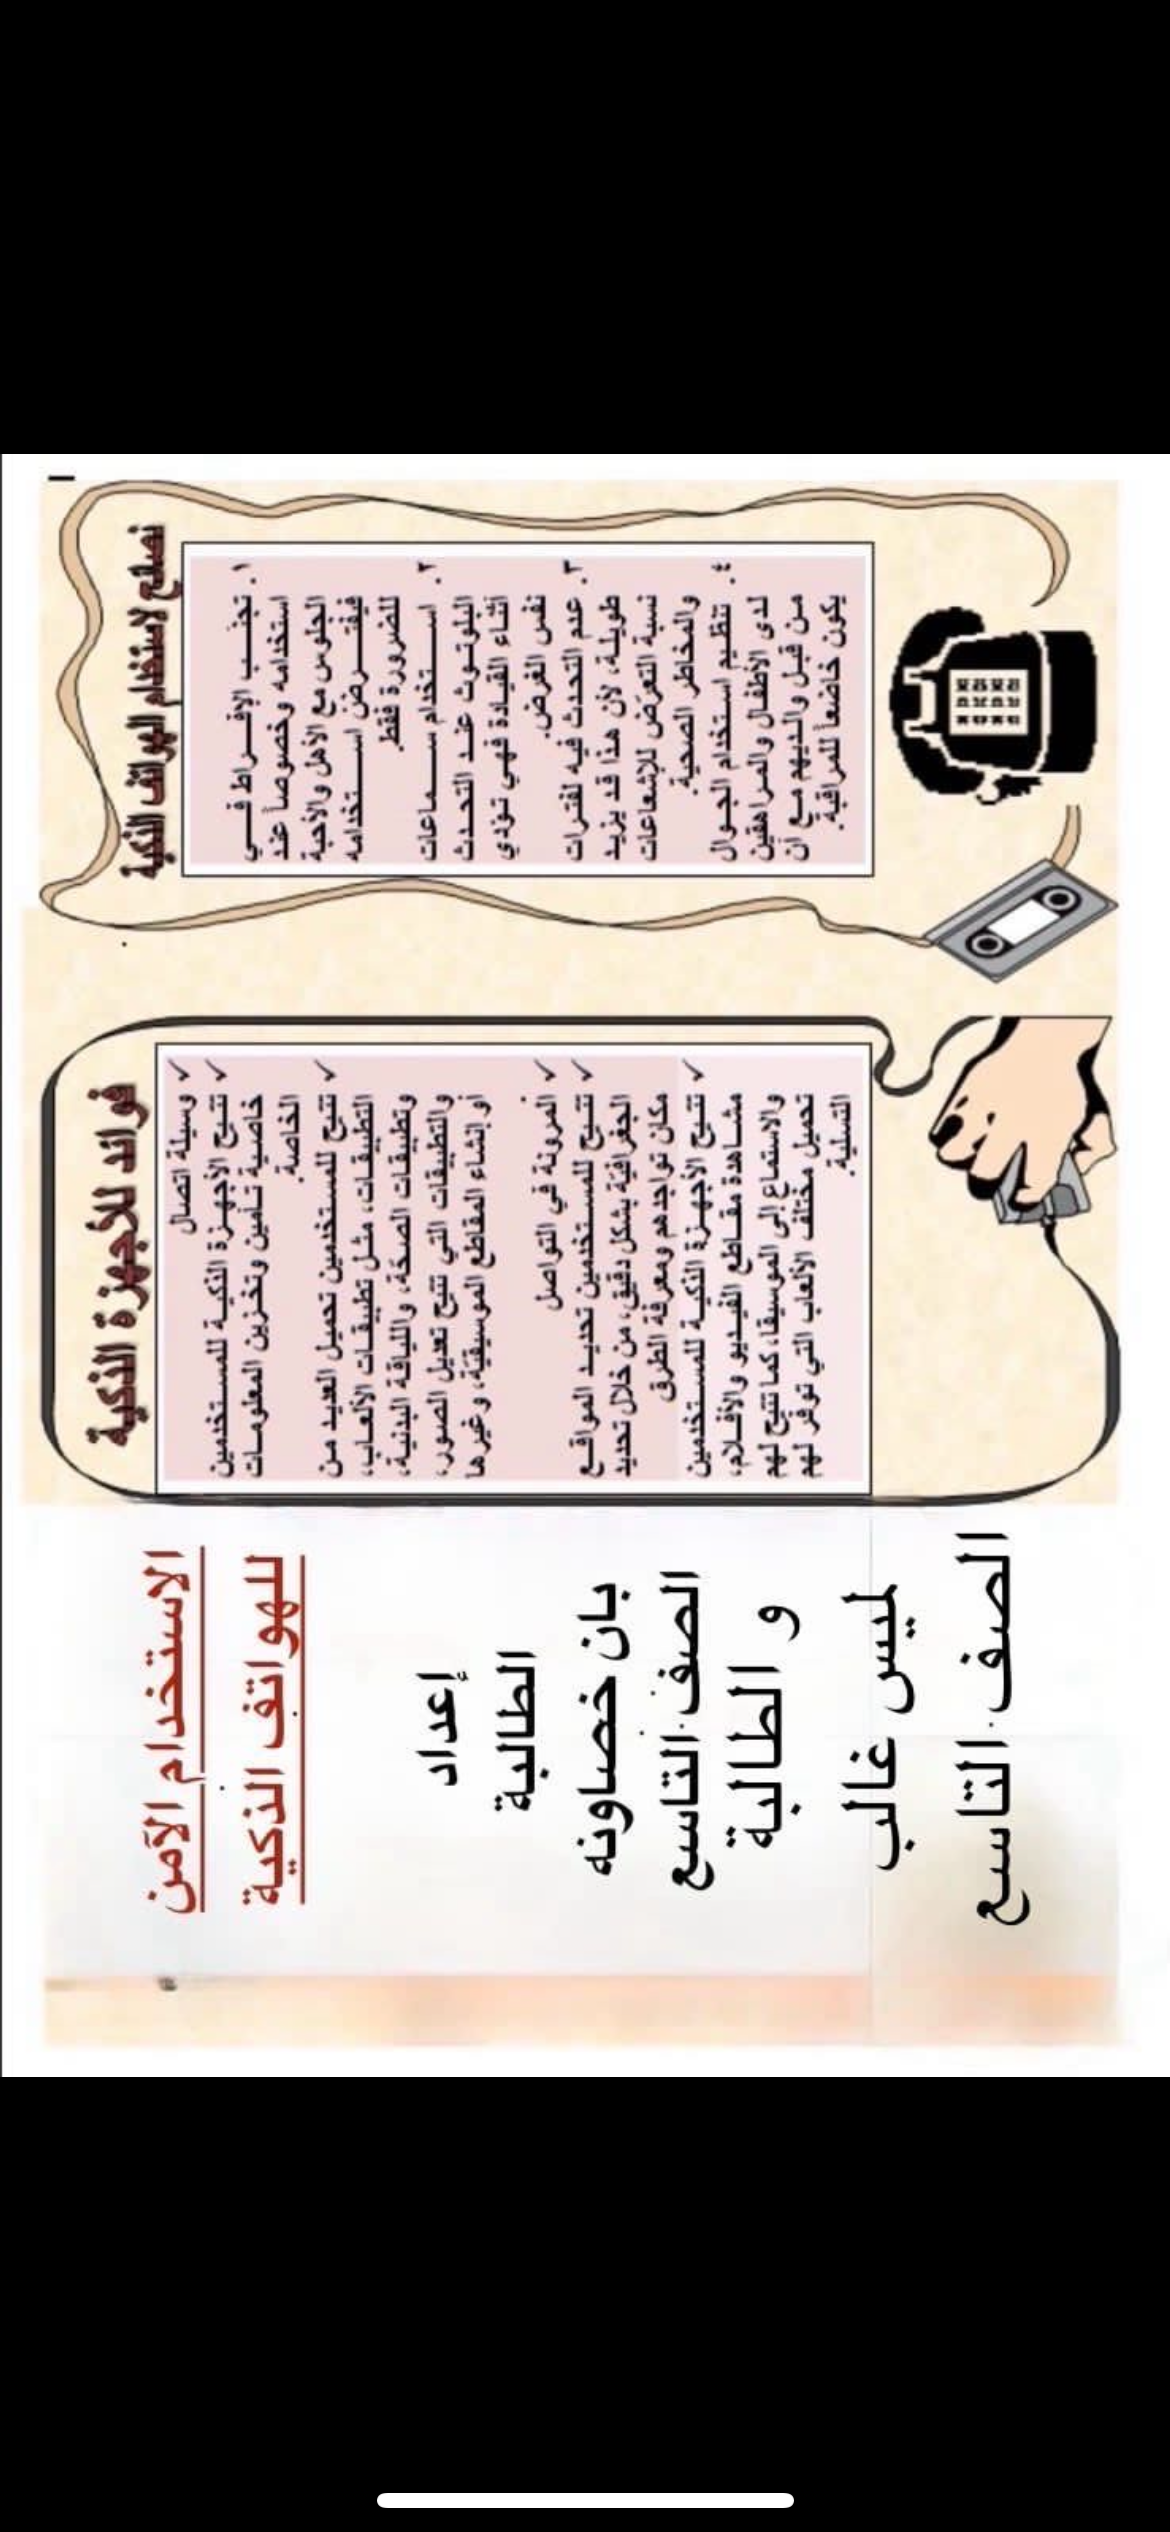 الاستخدام الآمن
للهواتف الذكية
إعداد
الطالبة
بان خصاونه
الصف التاسع
و الطالبة
لميس غالب
الصف التاسع
فوائد للأجهزة الذكية
✓ وسيلة اتصال
✓ تتيح الأجهزة الذكية للمستخدمين
خاصية تأمين وتخزين المعلومات
الخاصة.
✓ تتيح للمستخدمين تحميل العديد من
التطبيقات، مثل تطبيقات الألعاب،
وتطبيقات الصحّة، واللياقة البدنية،
والتطبيقات التي تتيح تعديل الصور،
أو إنشاء المقاطع الموسيقيّة، وغيرها
✓ المرونة في التواصل
✓ تتيح للمستخدمين تحديد المواقع
الجغرافيّة بشكل دقيق، من خلال تحديد
مكان تواجدهم ومعرفة الطرق
✓ تتيح الأجهزة الذكية للمستخدمين
مشاهدة مقاطع الفيديو والأفلام،
والاستماع إلى الموسيقا، كما تتيح لهم
تحميل مختلف الألعاب التي توفر لهم
التسلية.
نصائح لاستخدام الهواتف الذكية
١. تجنّب الإفراط في
استخدامه وخصوصاً عند
الجلوس مع الأهل والأحبة
فيفترض استخدامه
للضرورة فقط.
٢. استخدام سماعات
البلوتوث عند التحدث
أثناء القيادة فهي تؤدي
نفس الغرض.
٣. عدم التحدث فيه لفترات
طويلة، لأن هذا قد يزيد
نسبة التعرّض للإشعاعات
والمخاطر الصحية.
٤. تنظيم استخدام الجوال
لدى الأطفال والمراهقين
من قبل والديهم مع أن
يكون خاضعاً للمراقبة.